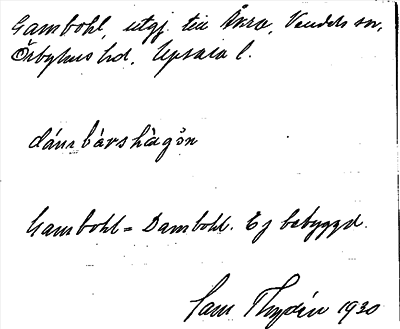 Gambohl, utgj. till Åkra, Vendels sn,
Örbyhus hd, Upsala l.
dámbårshàgȯn
Gambohl = Dambohl. Ej bebyggd.
Sam Thydén 1930